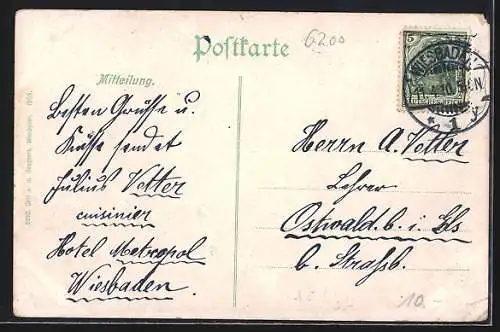 6200
Postkarte
Mitteilung.
5
WIESBADEN
* 1 y
Besten Grüsse u.
Küsse sendet
Julius Vetter
cuisinier
Hotel Metropol
Wiesbaden.
Herrn A. Vetter
Lehrer
Ostwald. b. i. Els
b. Straßb.
10.-